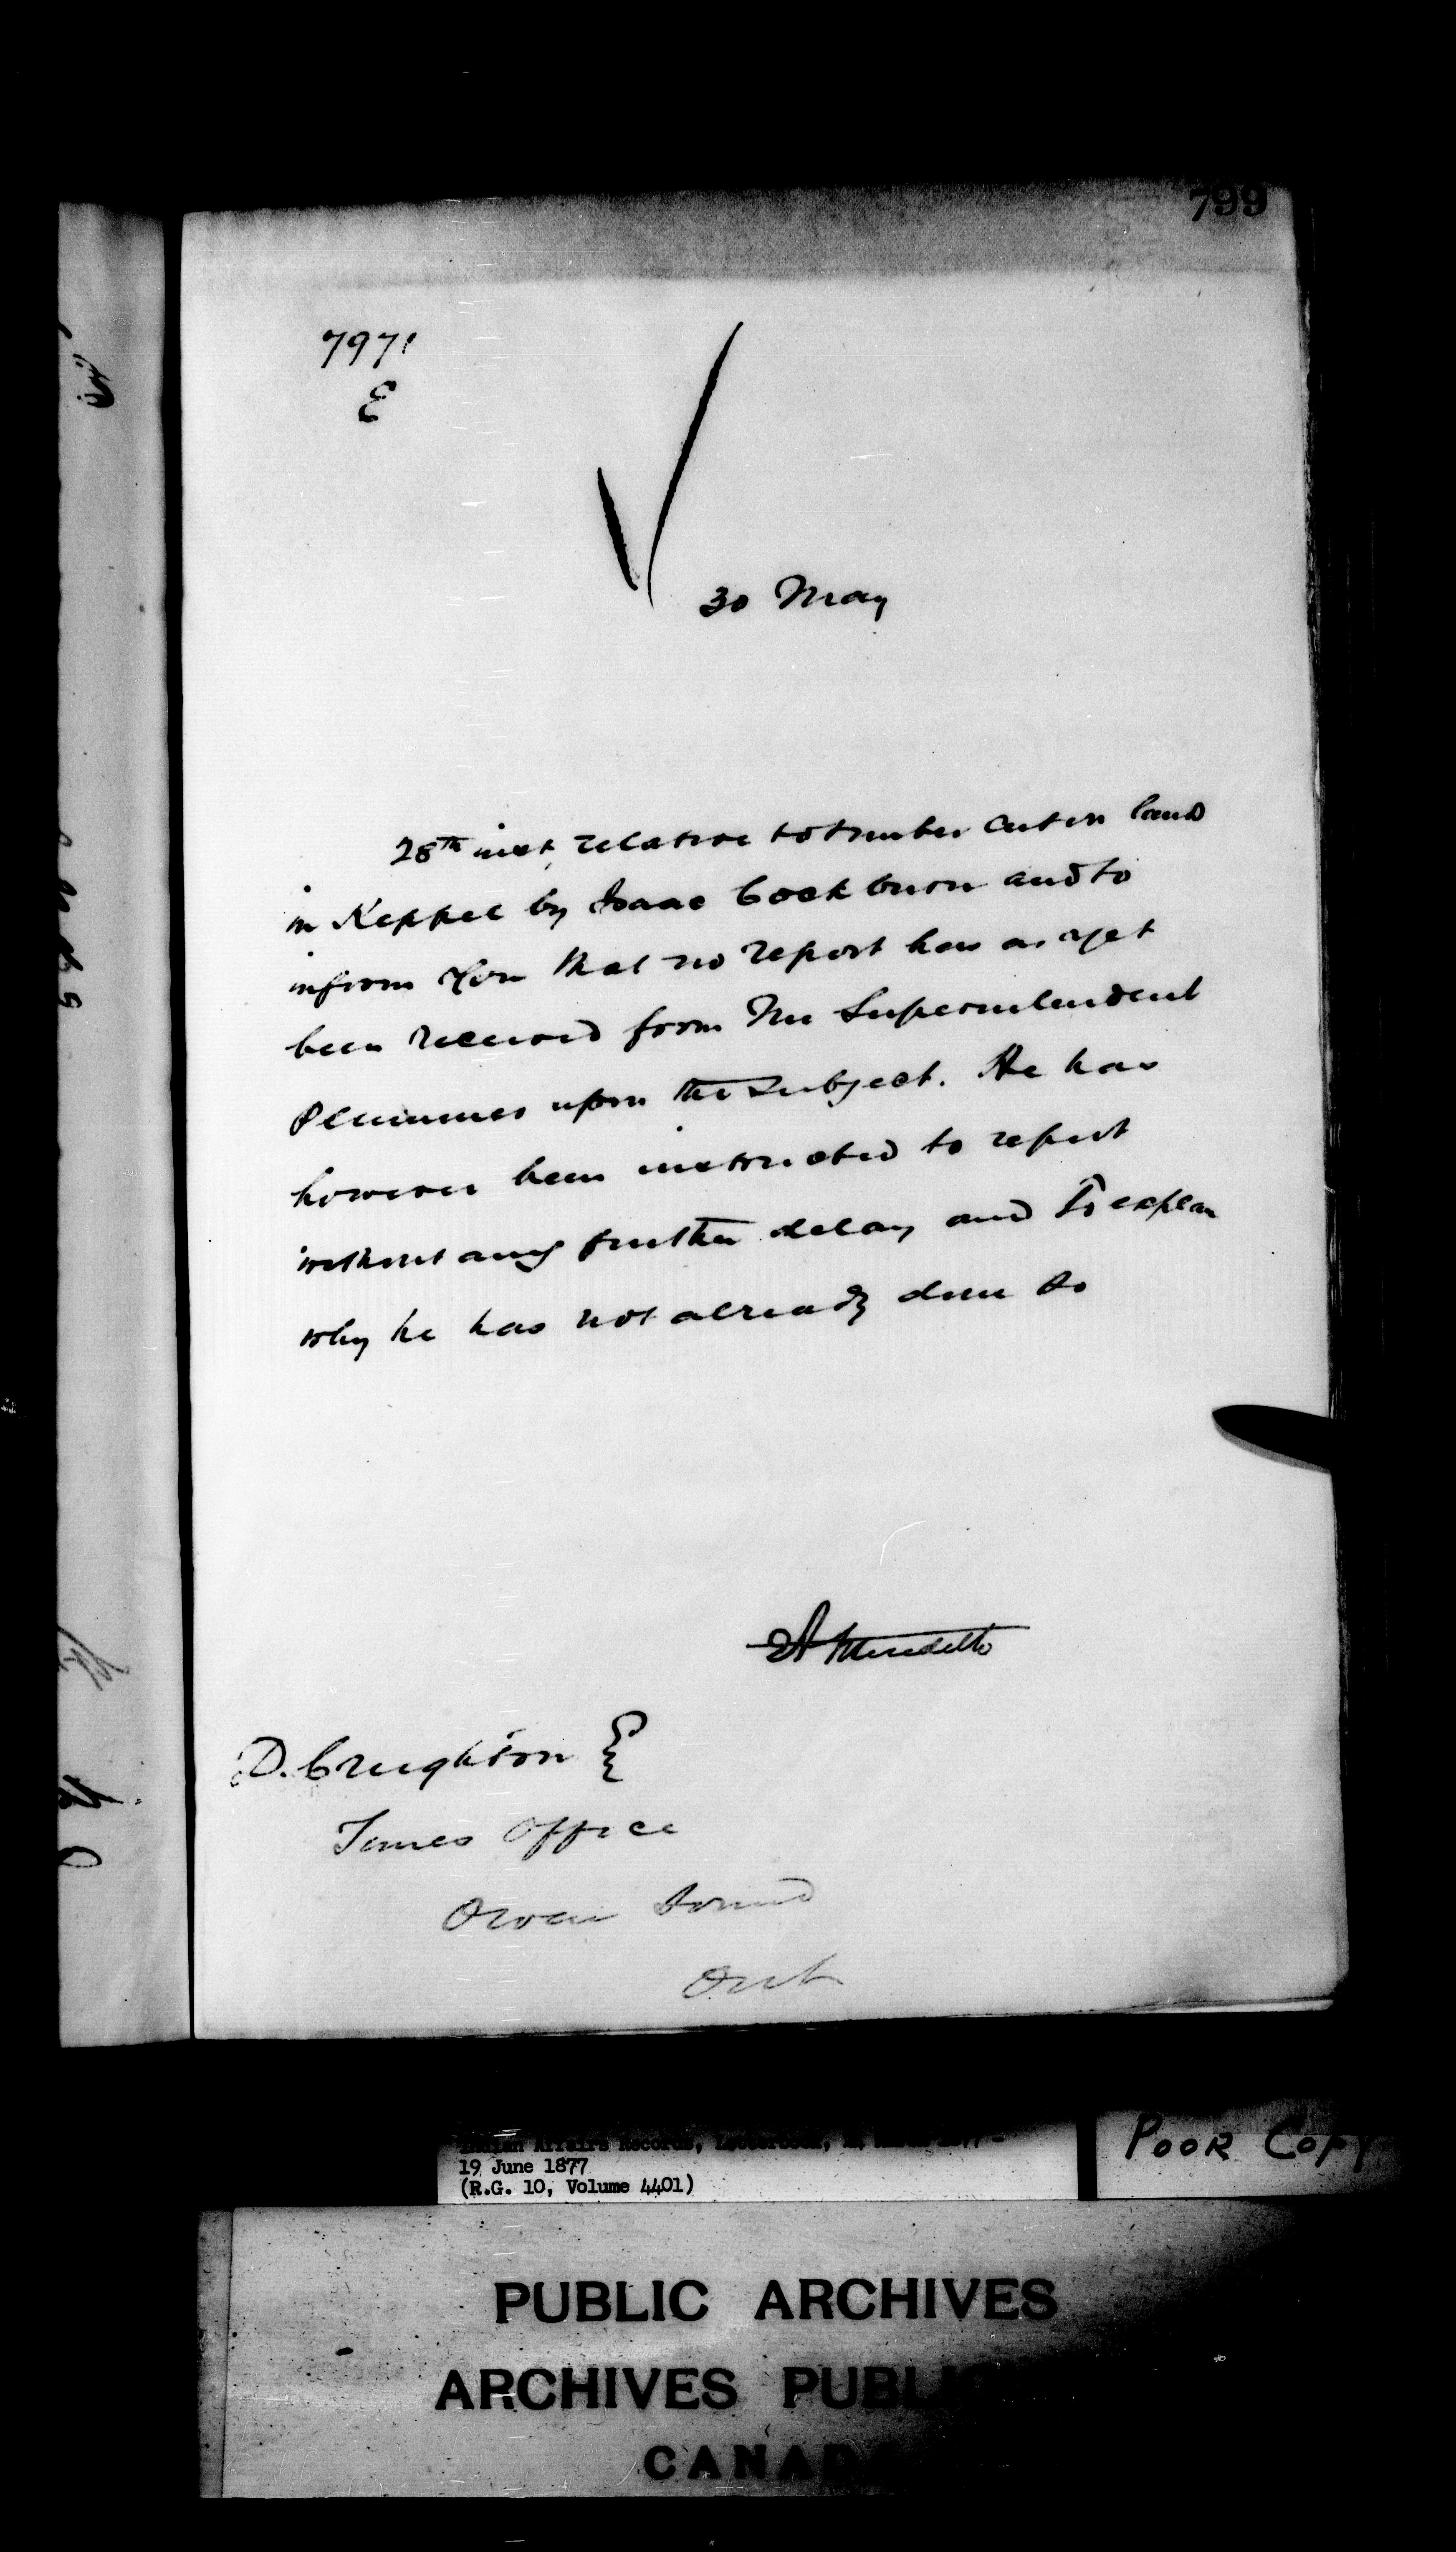 799
7971
E
30 May
28th inst, relative to timber cut on land
in Keppel by Isaac Cockburn and to
inform you that no report has as yet
been received from Mr Superintendent
Plummer upon the subject. He has
however been instructed to report
without any further delay and to explain
why he has not already done so
EA Meredith
D. Creighton
Times Office
Owen Sound
Ont
Indian Affairs Records, Letterbook,
19 June 1877
(R.G. 10, Volume 4401)
POOR COPY
PUBLIC ARCHIVES
ARCHIVES PUBLI
CANADA